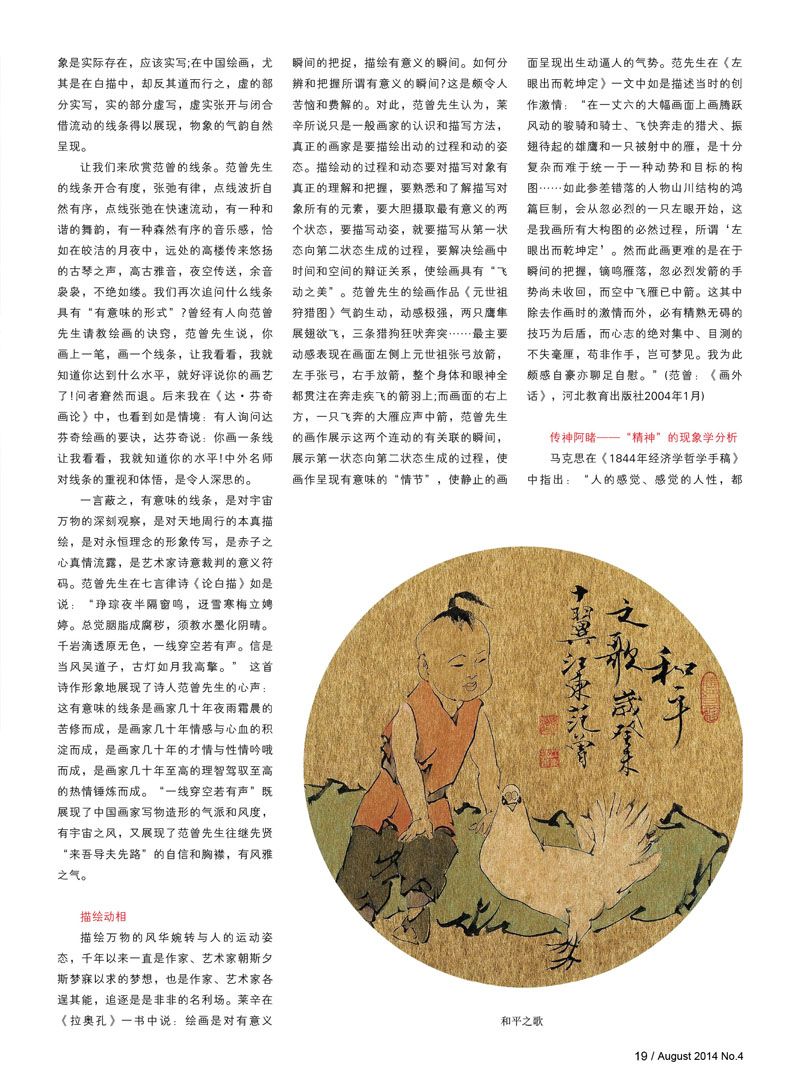 象是实际存在，应该实写;在中国绘画，尤
其是在白描中，却反其道而行之，虚的部
分实写，实的部分虚写，虚实张开与闭合
借流动的线条得以展现，物象的气韵自然
呈现。
让我们来欣赏范曾的线条。范曾先生
的线条开合有度，张弛有律，点线波折自
然有序，点线张弛在快速流动，有一种和
谐的舞韵，有一种森然有序的音乐感，恰
如在皎洁的月夜中，远处的高楼传来悠扬
的古琴之声，高古雅音，夜空传送，余音
袅袅，不绝如缕。我们再次追问什么线条
具有“有意味的形式”?曾经有人向范曾
先生请教绘画的诀窍，范曾先生说，你
画上一笔，画一个线条，让我看看，我就
知道你达到什么水平，就好评说你的画艺
了!问者窘然而退。后来我在《达·芬奇
画论》中，也看到如是情境：有人询问达
芬奇绘画的要诀，达芬奇说：你画一条线
让我看看，我就知道你的水平!中外名师
对线条的重视和体悟，是令人深思的。
一言蔽之，有意味的线条，是对宇宙
万物的深刻观察，是对天地周行的本真描
绘，是对永恒理念的形象传写，是赤子之
心真情流露，是艺术家诗意裁判的意义符
码。范曾先生在七言律诗《论白描》如是
说：“琤琮夜半隔窗鸣，迓雪寒梅立娉
婷。总觉胭脂成腐秽，须教水墨化阴晴。
千岩滴透原无色，一线穿空若有声。信是
当风吴道子，古灯如月我高擎。” 这首
诗作形象地展现了诗人范曾先生的心声：
这有意味的线条是画家几十年夜雨霜晨的
苦修而成，是画家几十年情感与心血的积
淀而成，是画家几十年的才情与性情吟哦
而成，是画家几十年至高的理智驾驭至高
的热情锤炼而成。“一线穿空若有声”既
展现了中国画家写物造形的气派和风度，
有宇宙之风，又展现了范曾先生往继先贤
“来吾导夫先路”的自信和胸襟，有风雅
之气。
描绘动相
描绘万物的风华婉转与人的运动姿
态，千年以来一直是作家、艺术家朝斯夕
斯梦寐以求的梦想，也是作家、艺术家各
逞其能，追逐是是非非的名利场。莱辛在
《拉奥孔》一书中说：绘画是对有意义
瞬间的把捉，描绘有意义的瞬间。如何分
辨和把握所谓有意义的瞬间?这是颇令人
苦恼和费解的。对此，范曾先生认为，莱
辛所说只是一般画家的认识和描写方法，
真正的画家是要描绘出动的过程和动的姿
态。描绘动的过程和动态要对描写对象有
真正的理解和把握，要熟悉和了解描写对
象所有的元素，要大胆摄取最有意义的两
个状态，要描写动姿，就要描写从第一状
态向第二状态生成的过程，要解决绘画中
时间和空间的辩证关系，使绘画具有“飞
动之美”。范曾先生的绘画作品《元世祖
狩猎图》气韵生动，动感极强，两只鹰隼
展翅欲飞，三条猎狗狂吠奔突……最主要
动感表现在画面左侧上元世祖张弓放箭，
左手张弓，右手放箭，整个身体和眼神全
都贯注在奔走疾飞的箭羽上;而画面的右上
方，一只飞奔的大雁应声中箭，范曾先生
的画作展示这两个连动的有关联的瞬间，
展示第一状态向第二状态生成的过程，使
画作呈现有意味的“情节”，使静止的画
面呈现出生动逼人的气势。范先生在《左
眼出而乾坤定》一文中如是描述当时的创
作激情：“在一丈六的大幅画面上画腾跃
风动的骏骑和骑士、飞快奔走的猎犬、振
翅待起的雄鹰和一只被射中的雁，是十分
复杂而难于统一于一种动势和目标的构
图……如此参差错落的人物山川结构的鸿
篇巨制，会从忽必烈的一只左眼开始，这
是我画所有大构图的必然过程，所谓‘左
眼出而乾坤定’。然而此画更难的是在于
瞬间的把握，镝鸣雁落，忽必烈发箭的手
势尚未收回，而空中飞雁已中箭。这其中
除去作画时的激情而外，必有精熟无碍的
技巧为后盾，而心志的绝对集中、目测的
不失毫厘，苟非作手，岂可梦见。我为此
颇感自豪亦聊足自慰。”(范曾：《画外
话》，河北教育出版社2004年1月)
传神阿睹——“精神”的现象学分析
马克思在《1844年经济学哲学手稿》
中指出：“人的感觉、感觉的人性，都
和平
之歌 歲癸未
十翼江東范曾
和平之歌
19 / August 2014 No.4